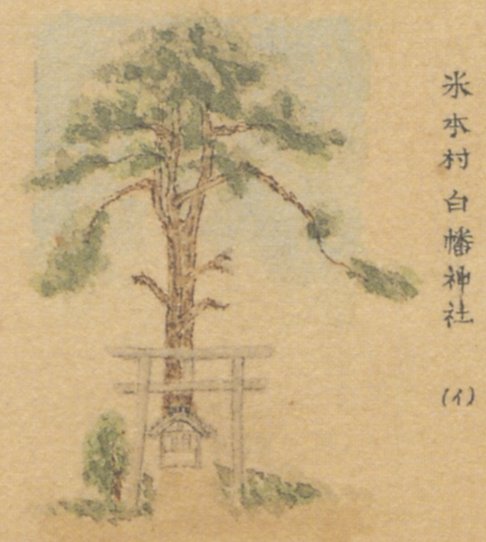 米本村 白幡神社 (イ)